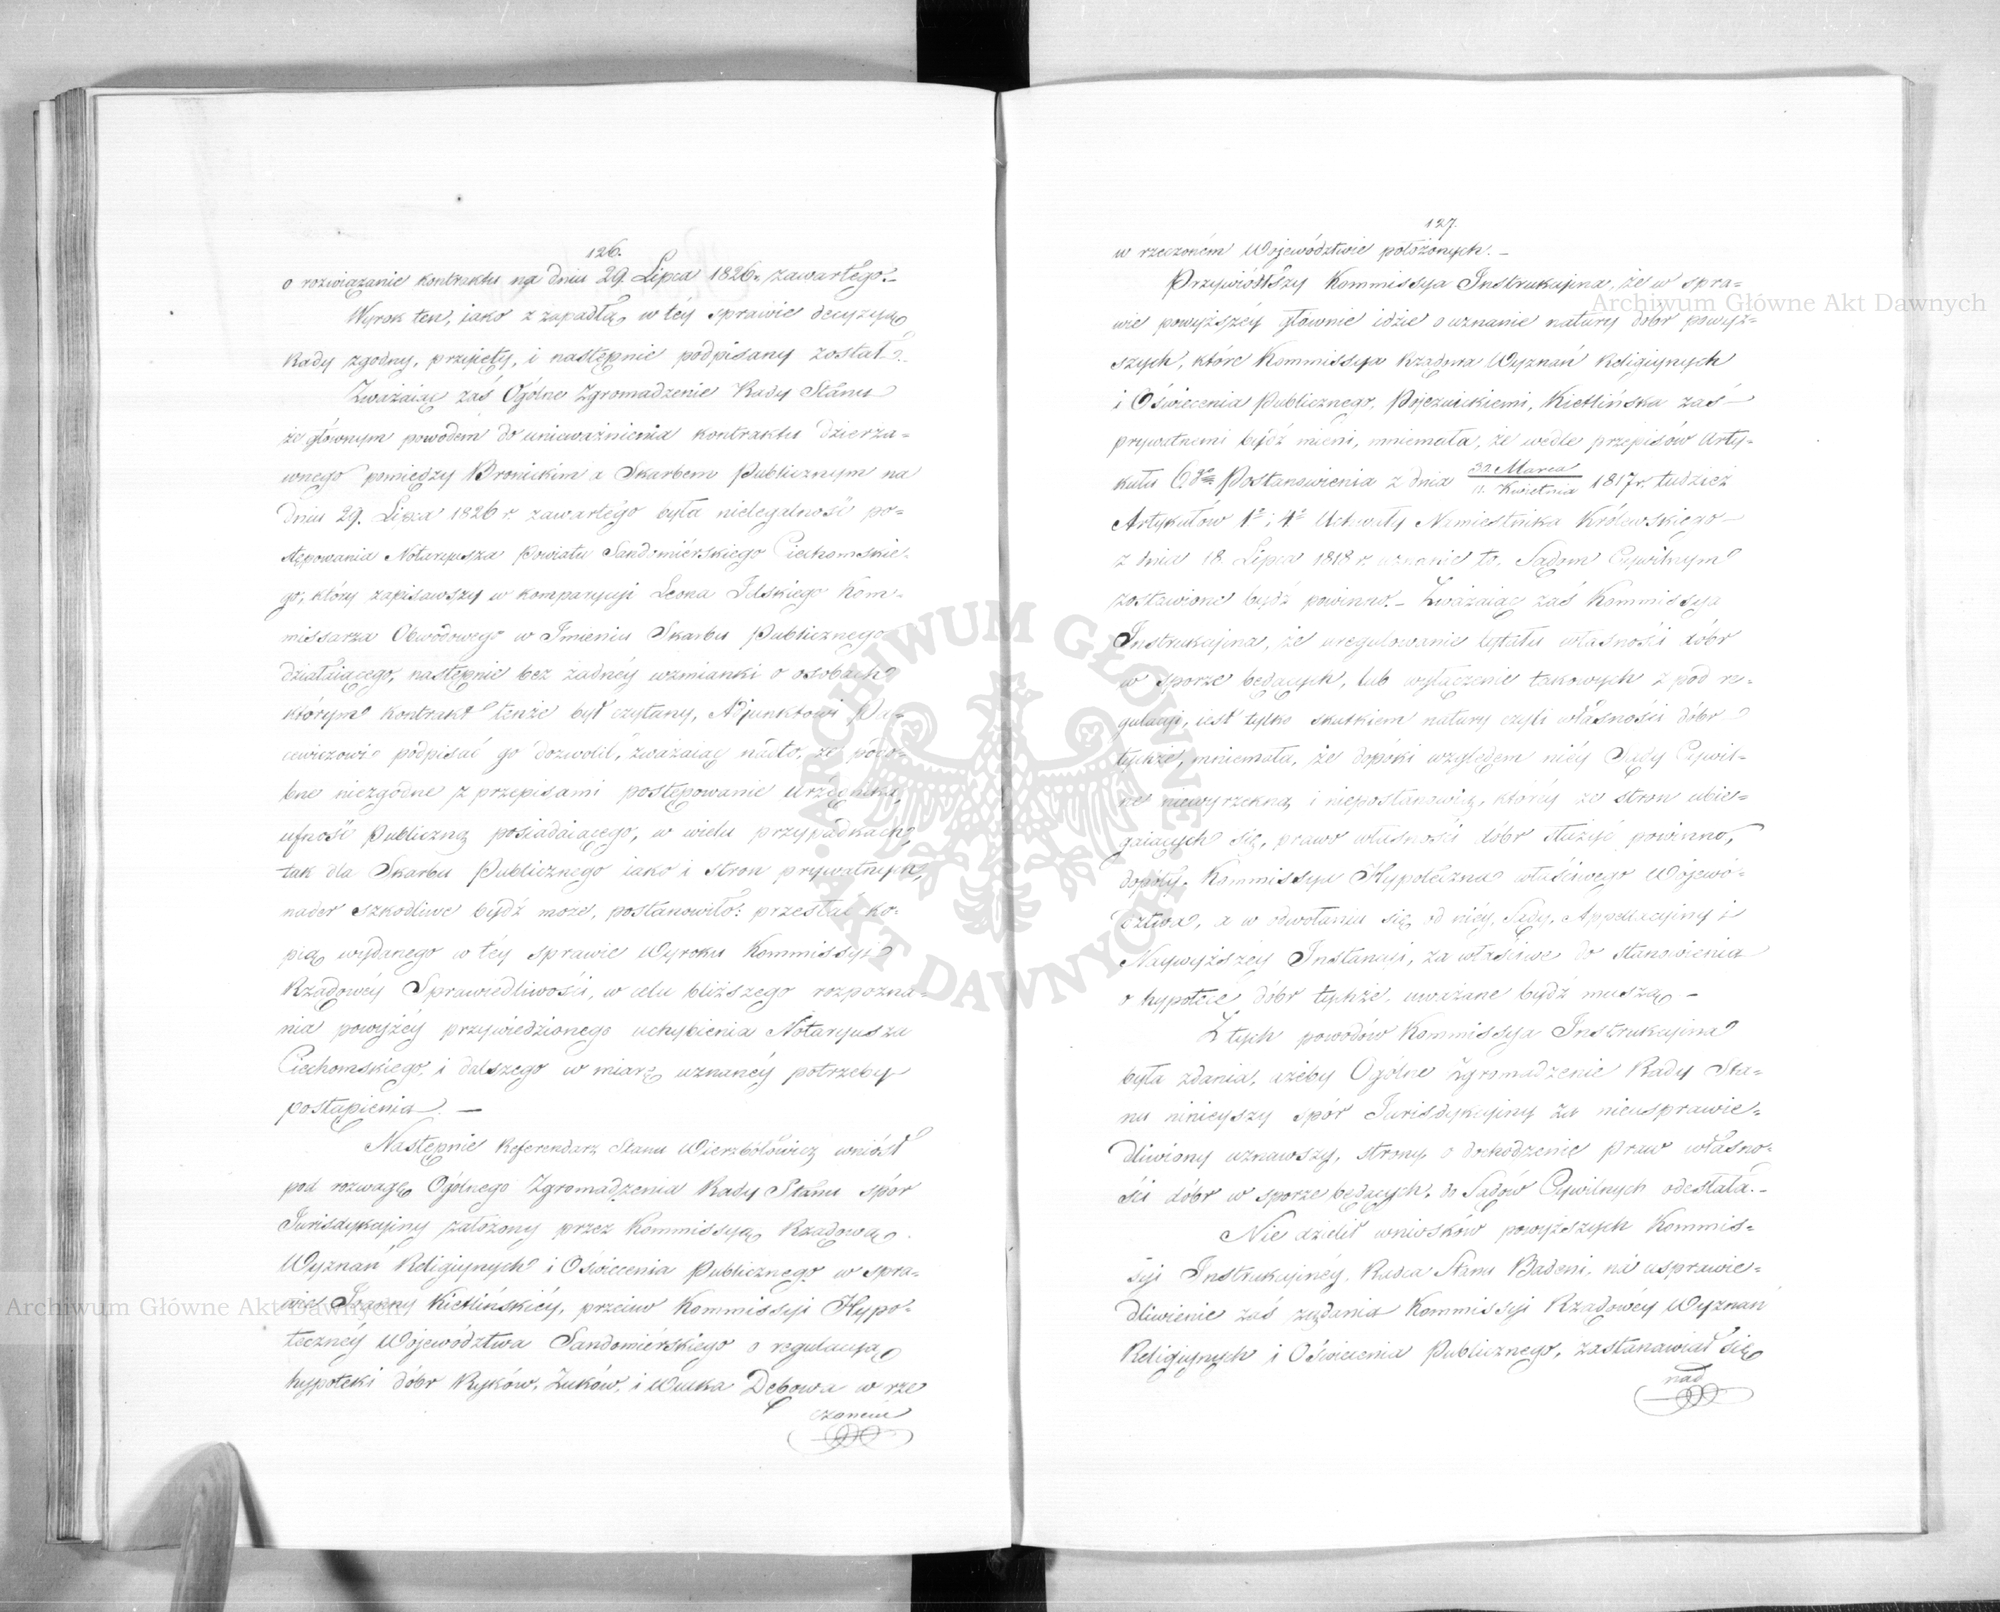 126.
o rozwiązanie kontraktu na dniu 29. Lipca 1826. zawartego.
Wyrok ten, jako z zapadłą w téy sprawie decyzyą
Rady zgodny, przyięty, i następnie podpisany został.
Zważaiąc zaś Ogólne Zgromadzenie Rady Stanu
że głównym powodem do unieważnienia kontraktu dzierża-
wnego pomiędzy Bronickim a Skarbem Publicznym na
dniu 29. Lipca 1826 r. zawartego była nielegalność po-
stępowania Notaryusza Powiatu Sandomiérskiego Ciechomskie-
go, który zapisawszy w komparycyi Leona Ilskiego Kom-
missarza Obwodowego w Imieniu Skarbu Publicznego
działaiącego, następnie bez żadnéy wzmianki o osobach
którym kontrakt tenże był czytany, Adjunktowi Pa-
cewiczowi podpisać go dozwolił, zważaiąc nadto, że podo-
bne niezgodne z przepisami postępowanie Urzędnika,
ufność Publiczną posiadaiącego, w wielu przypadkach,
tak dla Skarbu Publicznego iako i stron prywatnych,
nader szkodliwe bydź może, postanowiło: przesłać ko-
pią wydanego w téy sprawie Wyroku Kommissyi
Rządowéy Sprawiedliwości, w celu bliższego rozpozna-
nia powyżéy przywiedzionego uchybienia Notaryusza
Ciechomskiego, i dalszego w miarę uznanéy potrzeby
postąpienia. —
Następnie Referendarz Stanu Wierzbółowicz wniósł
pod rozwagę Ogólnego Zgromadzenia Rady Stanu spór
Jurisdykcyiny założony przez Kommissyą Rządową
Wyznań Religiynych i Oświecenia Publicznego w spra-
wie Joanny Kietlińskiéy, przeciw Kommissyi Hypo-
tecznéy Województwa Sandomiérskiego o regulacyą
hypoteki dóbr Ryków, Żuków, i Wulka Dębowa w rze
czoném
127.
w rzeczoném Województwie położonych. —
Przywiódłszy Kommissya Instrukcyina, że w spra-
wie powyższéy głównie idzie o uznanie natury dóbr powyż-
szych, które Kommissya Rządowa Wyznań Religiynych
i Oświecenia Publicznego, Pojezuickiemi, Kietlińska zaś —
prywatnemi bydź mieni, mniemała, że wedle przepisów Arty-
kułu 6go Postanowienia z dnia 30 Marca / 11. Kwietnia 1817 r. tudzież
Artykułów 1o i 4o Uchwały Namiestnika Królewskiego —
z dnia 18. Lipca 1818 r. uznanie to, Sądom Cywilnym
zostawione bydź powinno. — Zważaiąc zaś Kommissya
Instrukcyina, że uregulowanie tytułu własności dóbr
w sporze będących, lub wyłączenie takowych z pod re-
gulacyi, iest tylko skutkiem natury czyli własności dóbr
tychże, mniemała, że dopóki względem niéy Sądy Cywil-
ne niewyrzekną i niepostanowią, któréy ze stron ubie-
gaiących się, prawo własności dóbr służyć powinno,
dopóty, Kommissya Hypoteczna właściwego Wojewó-
dztwa, a w odwołaniu się od niéy, Sądy, Appellacyiny i
Naywyższéy Instancyi, za właściwe do stanowienia
o hypotece dóbr tychże, uważane bydź muszą —
Z tych powodów Kommissya Instrukcyina
była zdania, ażeby Ogólne Zgromadzenie Rady Sta-
nu ninieyszy spór Jurisdykcyiny za nieusprawie-
dliwiony uznawszy, strony o dochodzenie praw własno-
ści dóbr w sporze będących, do Sądów Cywilnych odesłała. —
Nie dzielił wniosków powyższych Kommis-
syi Instrukcyinéy, Radca Stanu Badeni, na usprawie-
dliwienie zaś żądania Kommissyi Rządowéy Wyznań
Religiynych i Oświecenia Publicznego, zastanawiał się
nad
Archiwum Główne Akt Dawnych
Archiwum Główne Akt Dawnych
ARCHIWUM GŁÓWNE AKT DAWNYCH